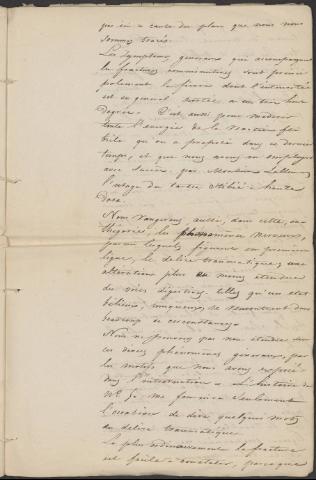 pas ici à cause du plan que nous nous
sommes tracés.
Les symptômes généraux qui accompagnent
les fractures comminutives sont princi
palement la fièvre dont l'intensité
est en général portée à un très haut
degré. C'est aussi pour modérer
toute l'énergie de la réaction fé
brile qu'on a proposé dans ces derniers
temps, et que nous avons vu employer
avec succès, par Monsieur Lallemand
l'usage du tartre stibié à haute
dose.
Nous rangeons aussi, dans cette ca
thégorie, les phénomènes nerveux,
parmi lesquels figurent en première
ligne, le délire traumatique; une
altération plus ou moins étendue
des voies digestives telles qu'un état
bilieux, muqueux, se rencontrent dans
beaucoup de circonstances.
Nous ne pouvons pas nous étendre sur
ces divers phénomènes généraux, par
les motifs que nous avons exposés
dans l'introduction. L'histoire du
N° 5. me fournira seulement
l'occasion de dire quelques mots
du délire traumatique.
Le plus ordinairement la fracture
est facile à constater, parce que